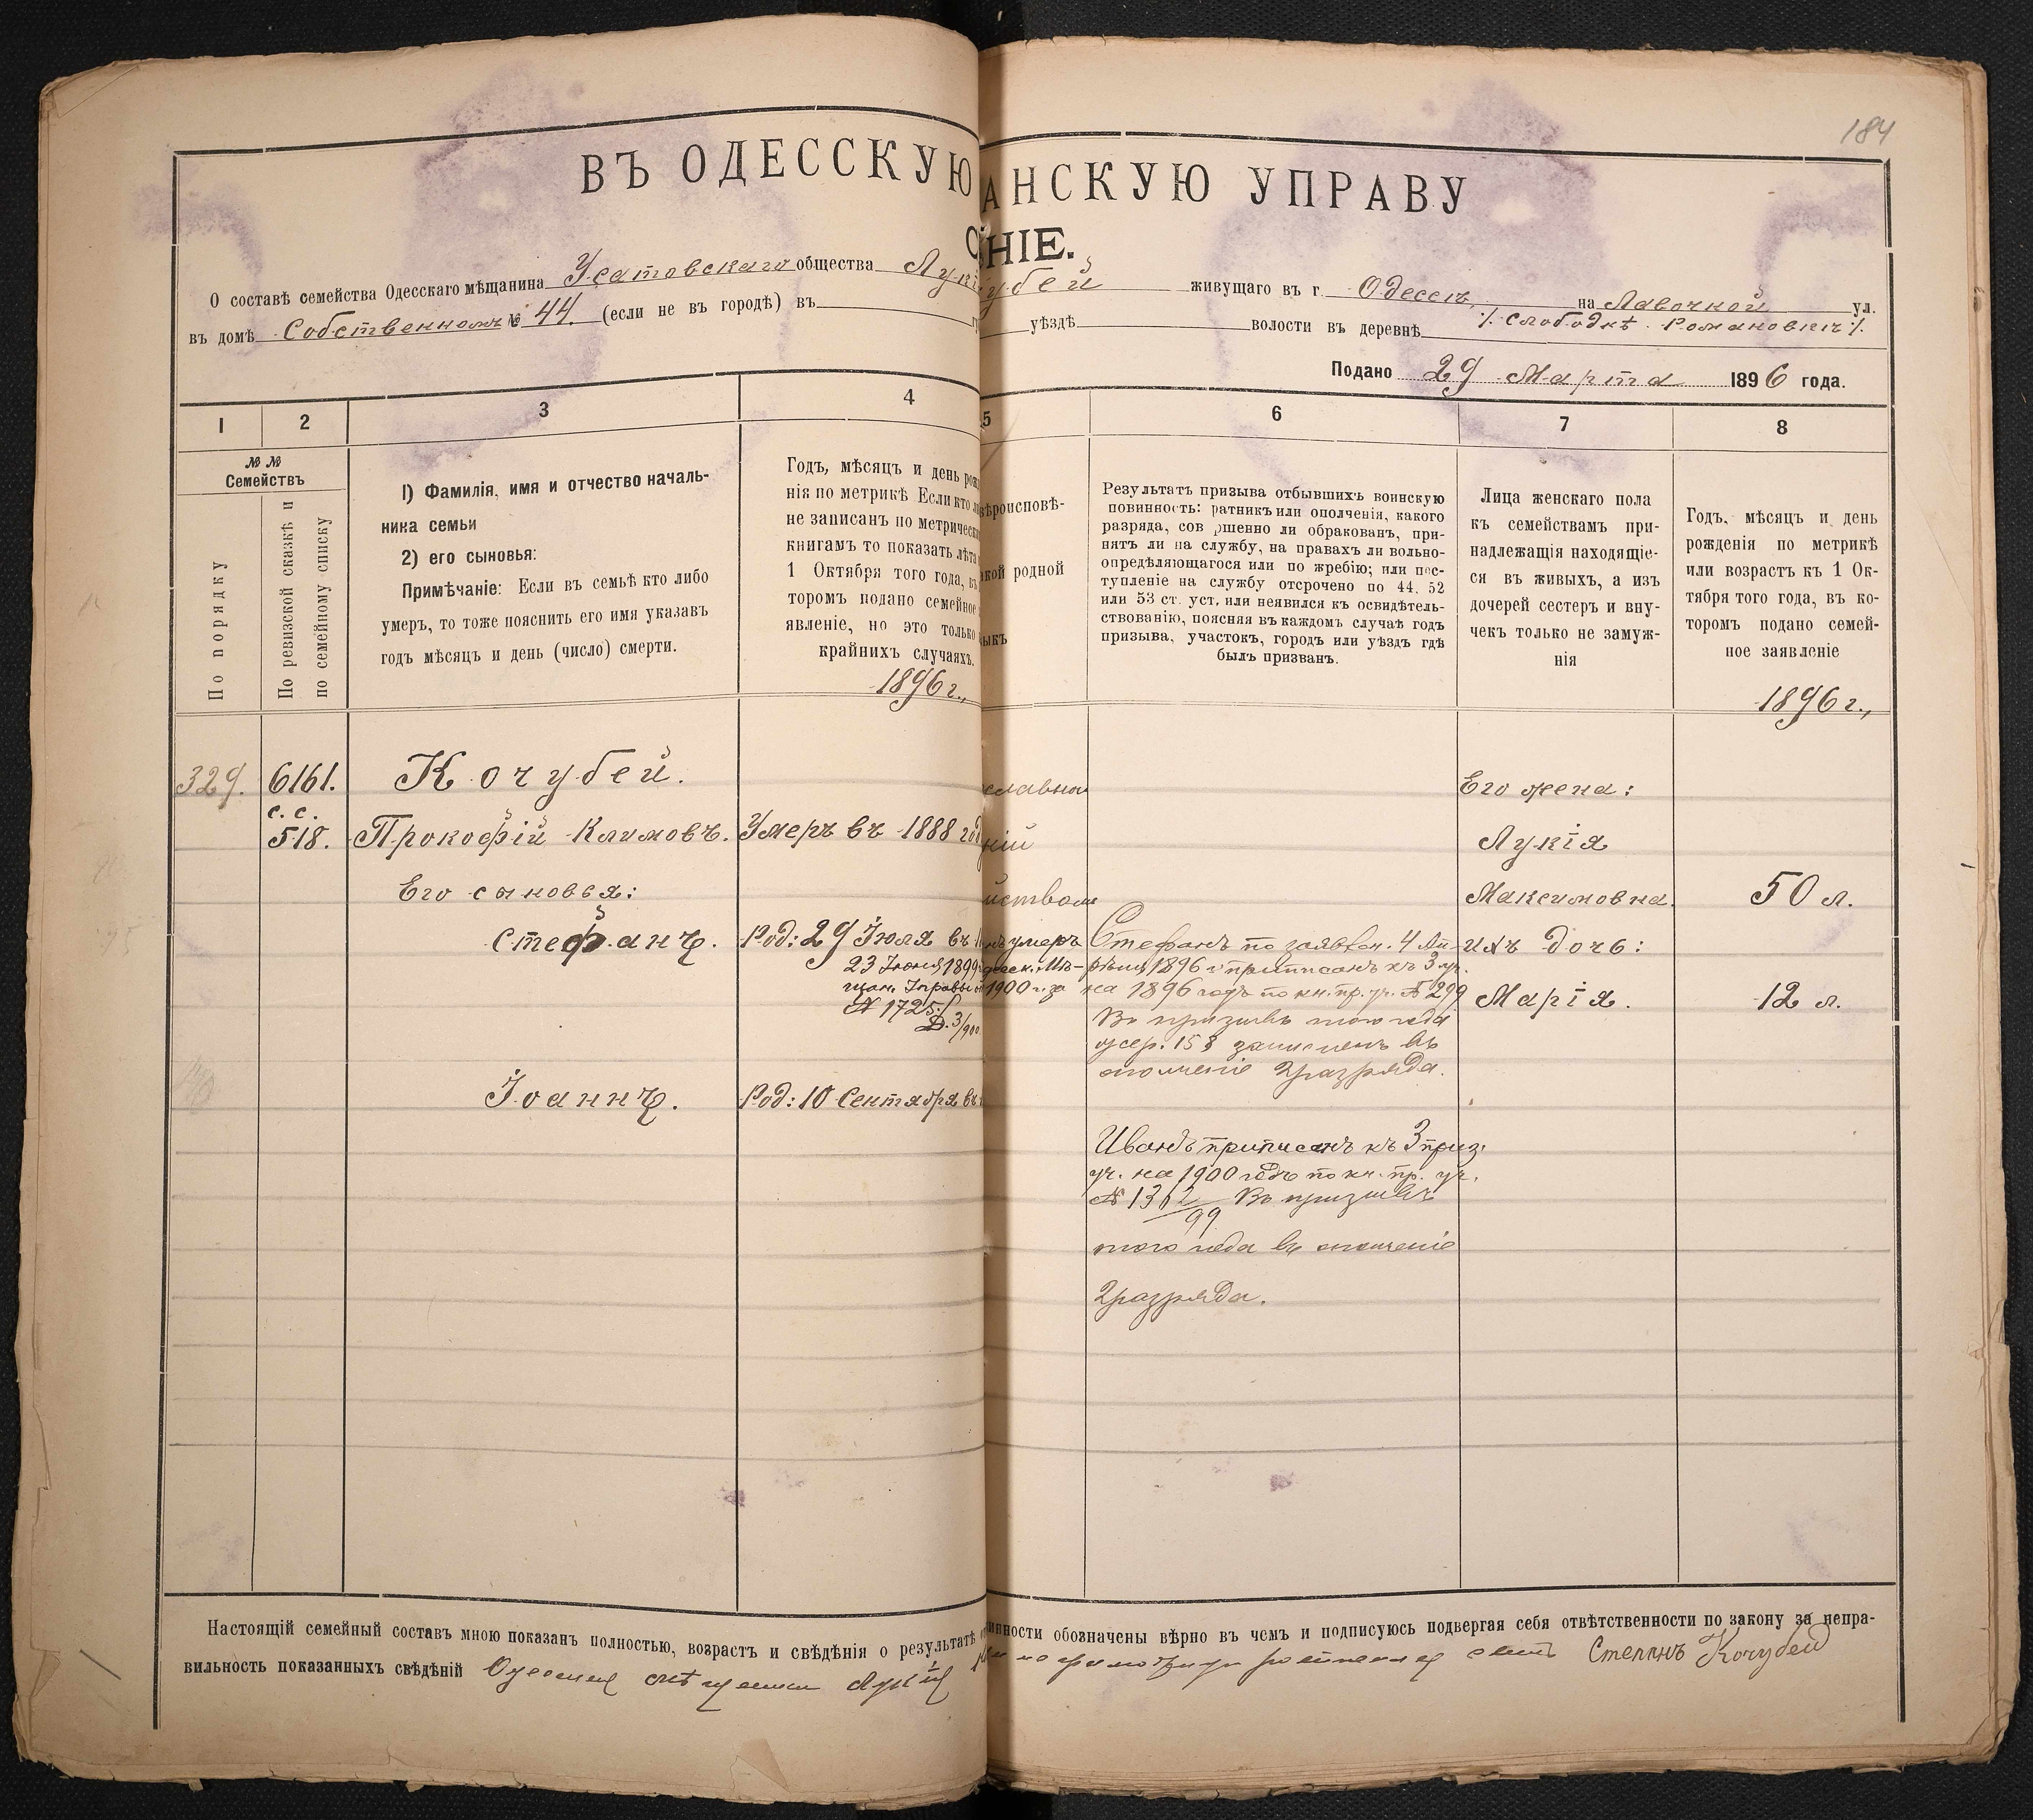 184
ВЪ ОДЕССКУЮ АНСКУЮ УПРАВУ
НІЕ.
О составѣ семейства Одесскаго мѣщанина Усатовскаго общества Луки убей живущаго въ г. Одессѣ на Лавочной ул.
въ домѣ Собственномъ № 44. (если не въ городѣ) въ уѣздѣ волости въ деревнѣ ٪ Слободкѣ Романовкѣ ٪
Подано 29 Марта 1896 года.
1 2 3 4 5 6 7 8
№ №
Семействъ
По порядку
По ревизской сказкѣ и
по семейному списку
1) Фамилія, имя и отчество началь-
ника семьи
2) его сыновья:
Примѣчаніе: Если въ семьѣ кто либо
умеръ, то тоже пояснить его имя указавъ
годъ мѣсяцъ и день (число) смерти.
Годъ, мѣсяцъ и день рож
нія по метрикѣ Если кто
не записанъ по метричес
книгамъ то показать лѣта
1 Октября того года, въ
торомъ подано семейное
явленіе, но это только
крайнихъ случаяхъ.
1896 г.,
вѣроисповѣ-
кой родной
зыкъ
Результатъ призыва отбывшихъ воинскую
повинность: ратникъ или ополченія, какого
разряда, сов ршенно ли обракованъ, при-
нятъ ли на службу, на правахъ ли вольно-
опредѣляющагося или по жребію; или пос-
тупленіе на службу отсрочено по 44, 52
или 53 ст. уст. или неявился къ освидѣтель-
ствованію, поясняя въ каждомъ случаѣ годъ
призыва, участокъ, городъ или уѣздъ гдѣ
былъ призванъ.
Лица женскаго пола
къ семействамъ при-
надлежащія находящіе-
ся въ живыхъ, а изъ
дочерей сестеръ и вну-
чекъ только не замуж-
нія
Годъ, мѣсяцъ и день
рожденія по метрикѣ
или возрастъ къ 1 Ок-
тября того года, въ ко-
торомъ подано семей-
ное заявленіе
1896 г.,
329. 6161. Кочубей.
с. с.
518. Прокофій Климовъ. Умеръ въ 1888 год
Его сыновья:
Стефанъ. Род: 29 Іюля въ
23 Іюня 1899
щан. Управы
№ 1725
Д. 3/900
Іоаннъ. Род: 10 Сентября въ
славно
кій
йствомъ
умеръ
десск. Мѣ-
1900 г. за
Стефанъ по заявлен. 4 Ап-
рѣля 1896 г приписанъ къ 3 уч.
на 1896 годъ по кн. пр. уч. № 299
Въ призывъ того года
жер. 153 зачисленъ въ
ополченіе 2 разряда.
Иванъ приписанъ къ 3 приз.
уч. на 1900 годъ по кн. пр. уч.
№ 1312/99 Въ призывъ
того года въ ополченіе
2 разряда.
Его жена:
Лукія
Максимовна. 50 л.
Ихъ дочь:
Марія. 12 л.
Настоящій семейный составъ мною показанъ полностью, возрастъ и свѣдѣнія о результатѣ инности обозначены вѣрно въ чемъ и подписуюсь подвергая себя отвѣтственности по закону за непра-
вильность показанныхъ свѣдѣній Одесская мѣщанка Лукія Степанъ Кочубей